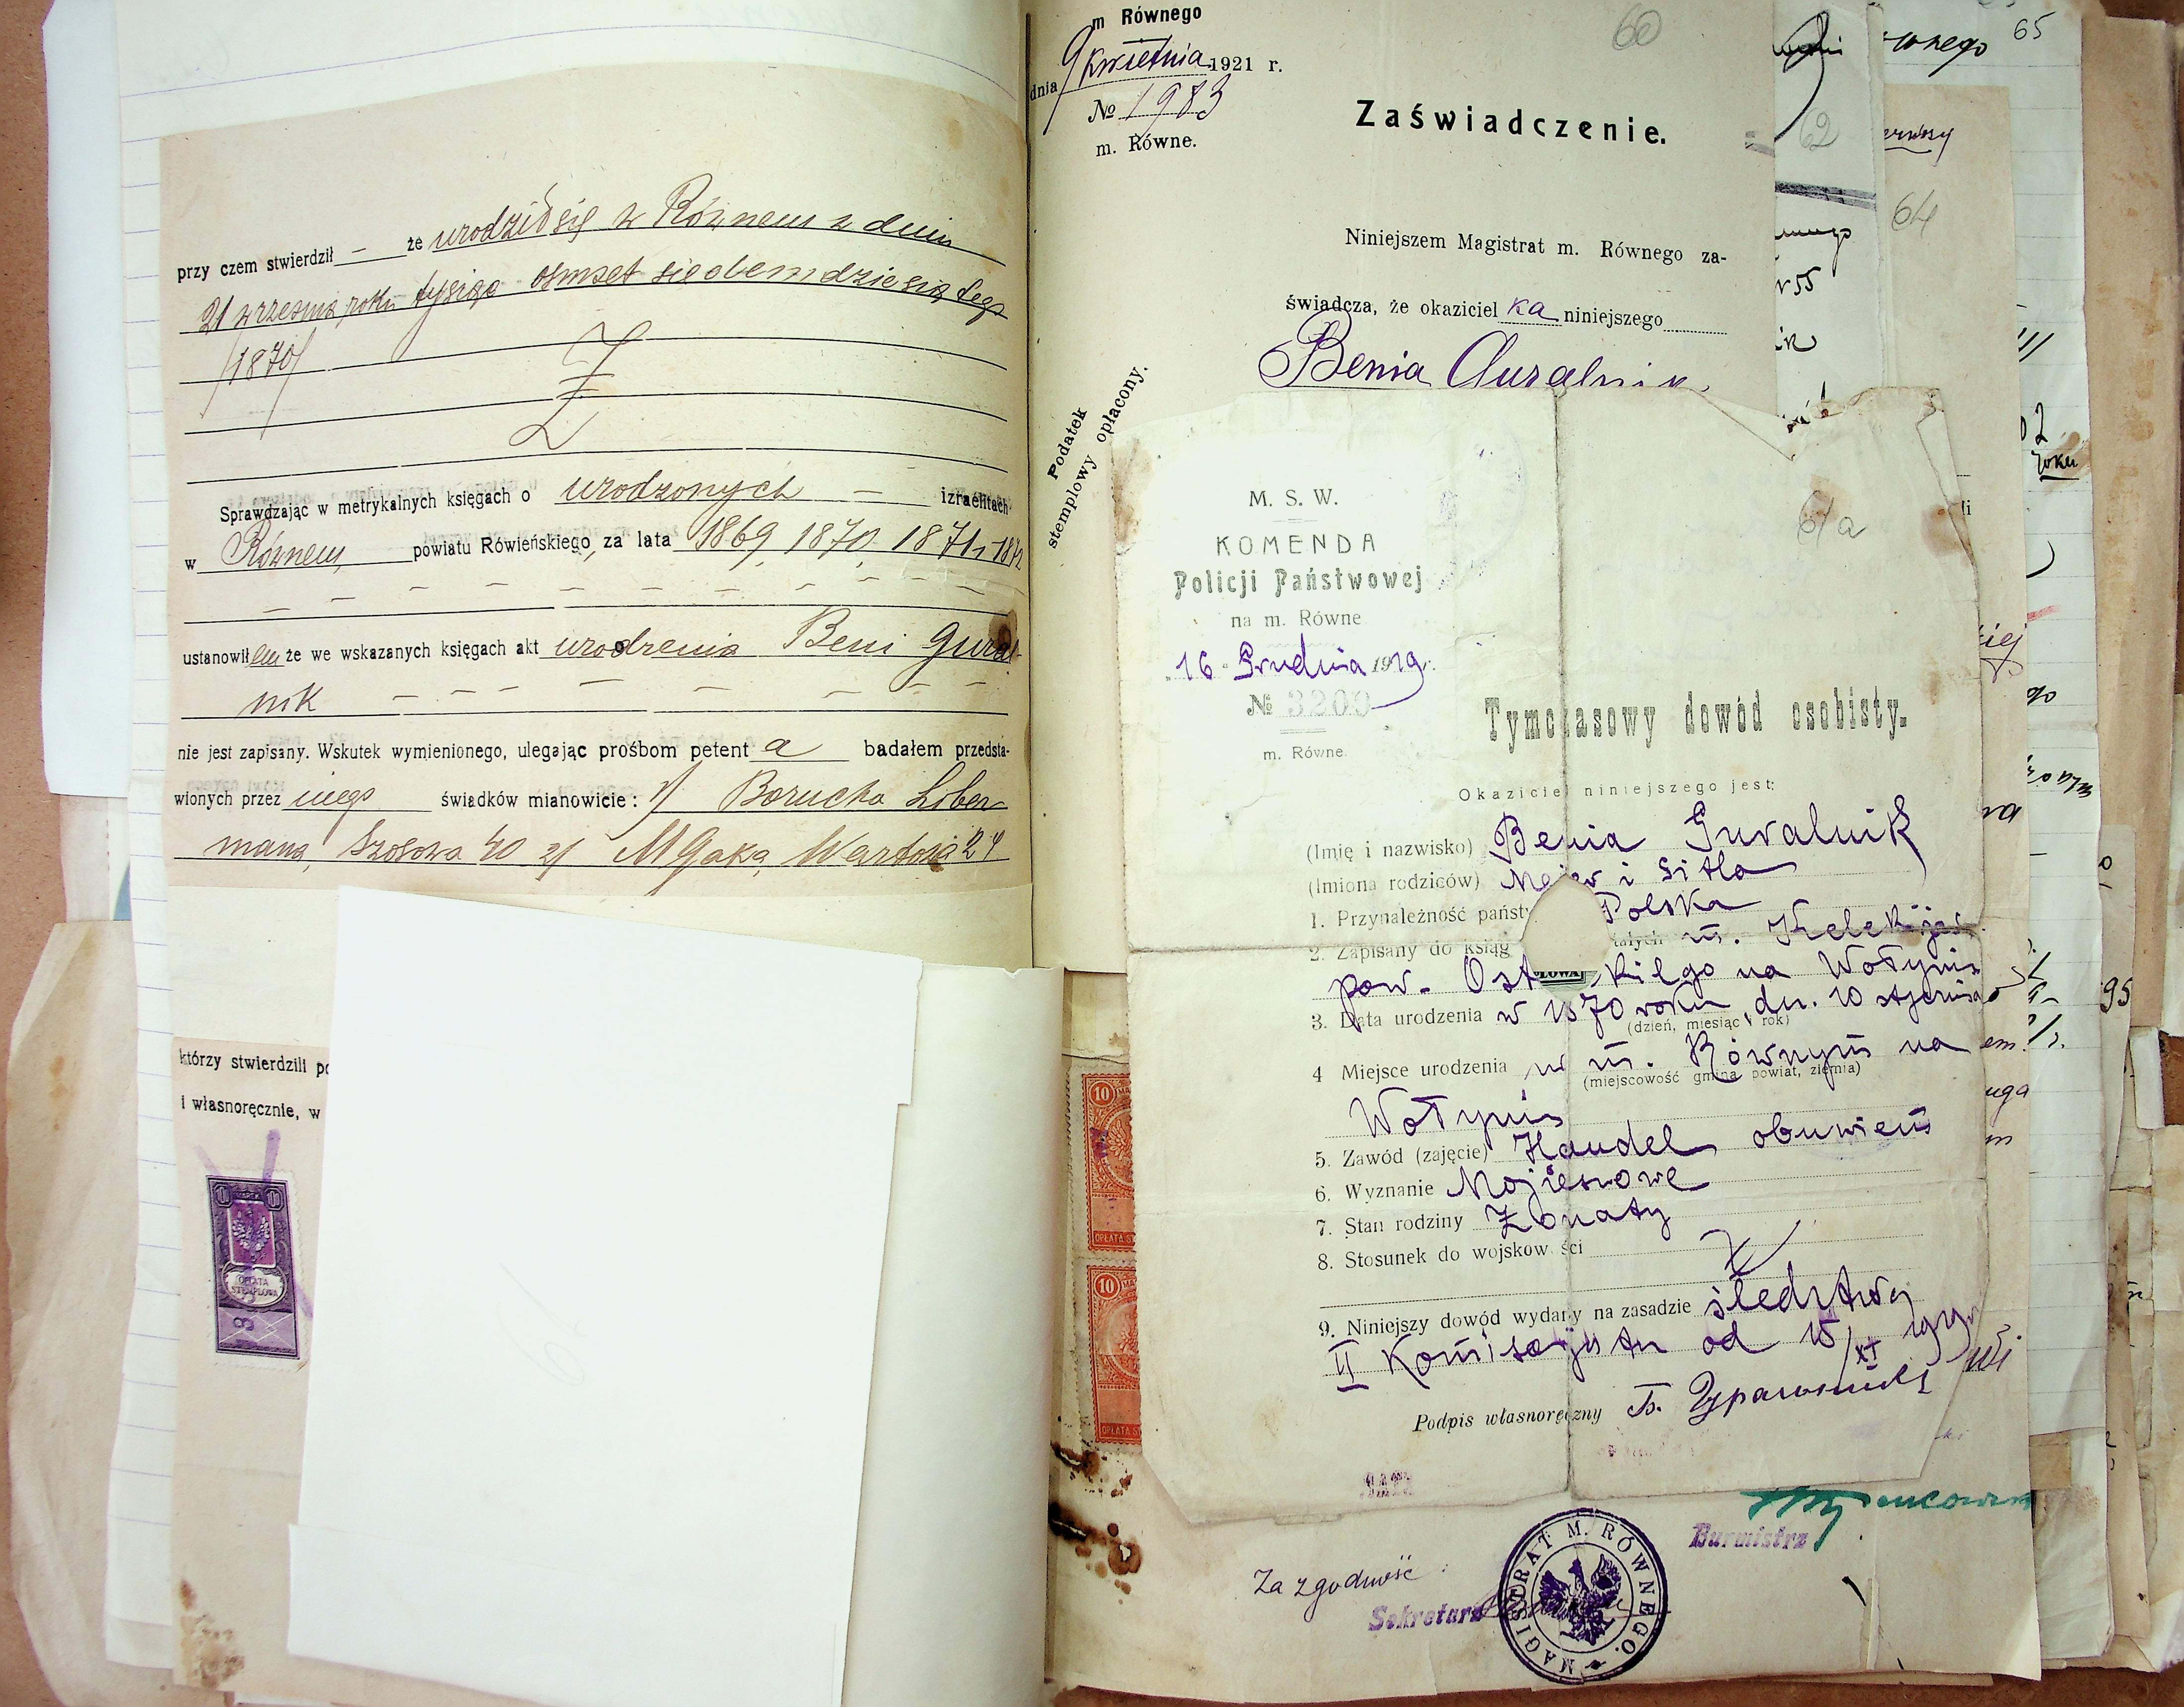 przy czem stwierdził — że urodził się w Równem w dniu
21 września roku tysiąc osmset siedemdziesiątego
/1870/
Sprawdzając w metrykalnych księgach o urodzonych — izraelitach
w Równem, powiatu Rówieńskiego, za lata 1869, 1870, 1871, 1872
ustanowiłem że we wskazanych księgach akt urodzenia Beni Gural-
nik
nie jest zapisany. Wskutek wymienionego, ulegając prośbom petenta badałem przedsta-
wionych przez niego świadków mianowicie: 1/ Borucha Liber-
mana, Szosowa 40 2/ M Gaka, 24
którzy stwierdzili
i własnoręcznie, w
OPŁATA
STEMPLOWA
m Równego
dnia 9 kwietnia 1921 r.
№ 1983
m. Równe.
60
Zaświadczenie.
Niniejszem Magistrat m. Równego za-
świadcza, że okaziciel ka niniejszego
Benia Guralnik
Podatek
stemplowy opłacony.
M. S. W.
KOMENDA
Policji Państwowej
na m. Równe
16 Grudnia 1919 r.
№ 3209
m. Równe.
61a
Tymczasowy dowód osobisty.
Okaziciel niniejszego jest:
(Imię i nazwisko) Benia Guralnik
(Imiona rodziców) Mejer i Sitla
1. Przynależność państ Polska
2. Zapisany do ksiąg m.
pow. Ost kiego na Wołyniu
3. Data urodzenia w 1870 roku, dn. 10 stycznia
(dzień, miesiąc rok)
4 Miejsce urodzenia w m. Równym na
(miejscowość gmina powiat, ziemia)
Wołyniu
5. Zawód (zajęcie) Handel obuwiem
6. Wyznanie Mojżeszowe
7. Stan rodziny Żonaty
8. Stosunek do wojskowości
9. Niniejszy dowód wydany na zasadzie śledztwa
II Komisarjatu od 15/XI 1919
Podpis własnoręczny
10
10
Burmistrz
Za zgodność:
Sekretarz
MAGISTRAT M. RÓWNEGO.
62
64
65
roku
95